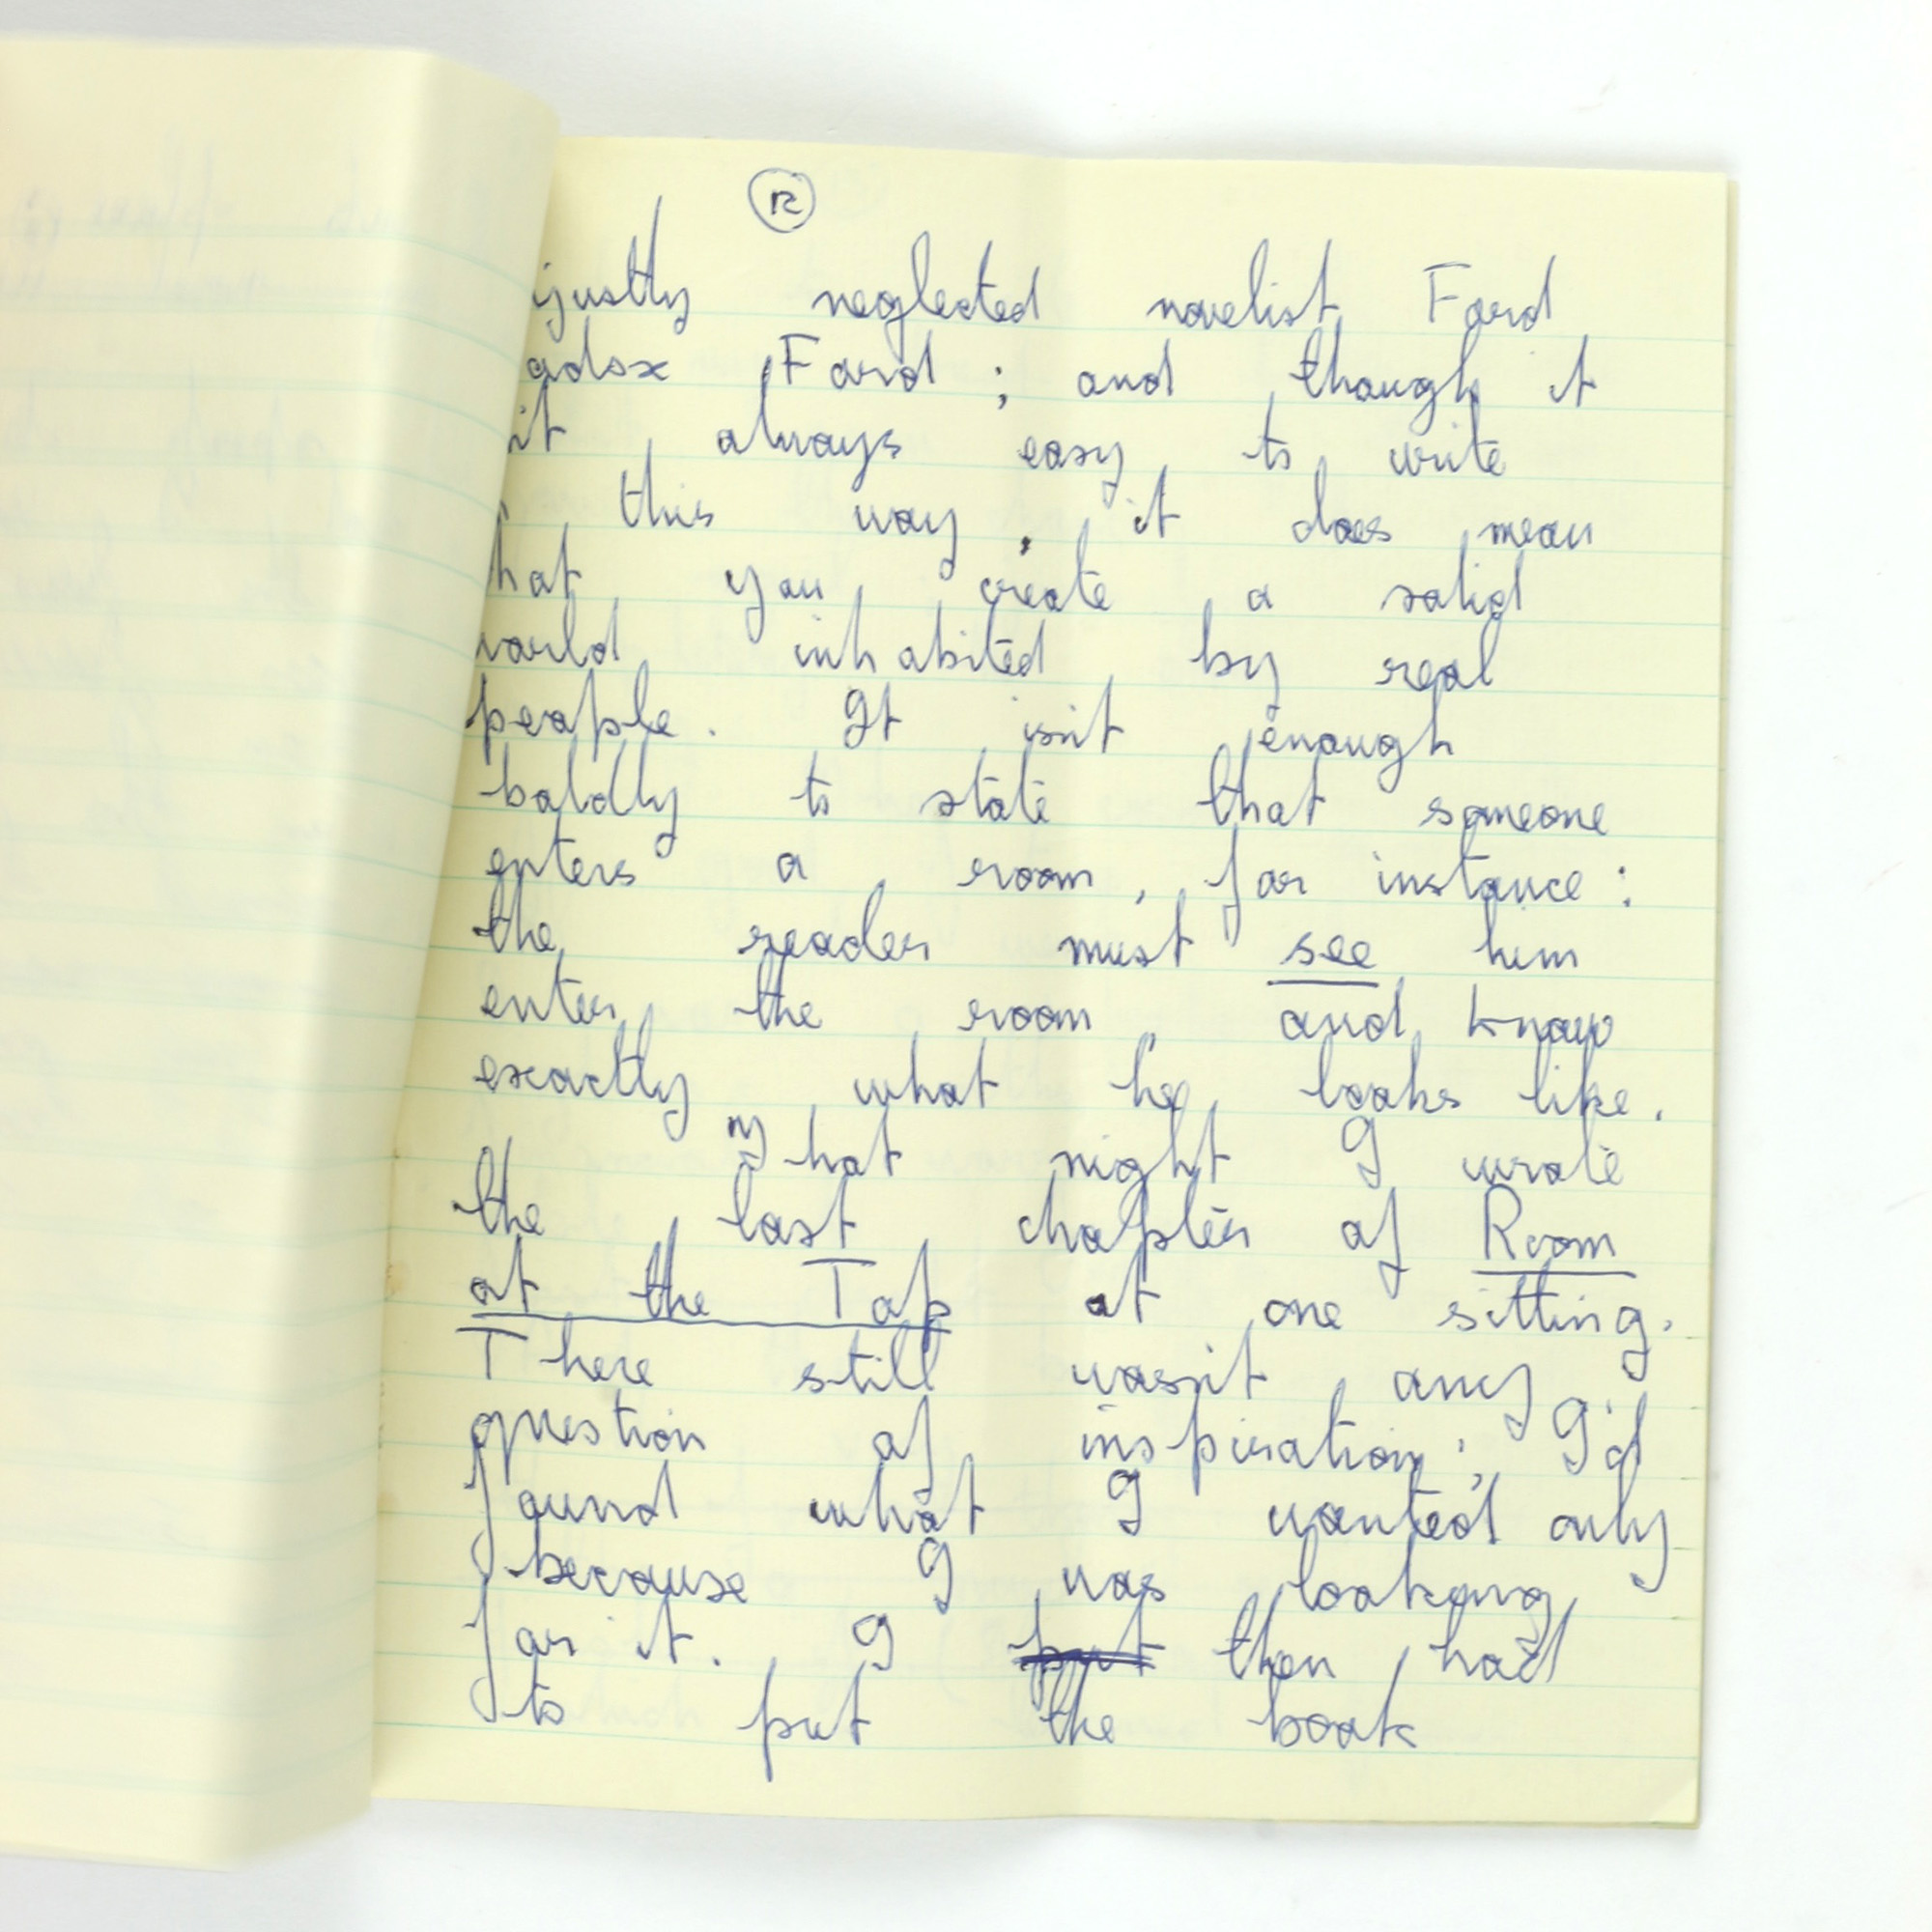 12
justly neglected novelist Ford
adox Ford; and though it
always easy to write
this way, it does mean
hat you create a solid
world inhabited by real
people. It isn't enough
baldly to state that someone
enters a room, for instance:
the reader must see him
enter the room, and know
exactly what he looks like.
That night I wrote
the last chapter of Room
at the Top at one sitting.
There still wasn't any
question of inspiration; I'd
found what I wanted only
because I was looking
for it. I put then had
to put the book